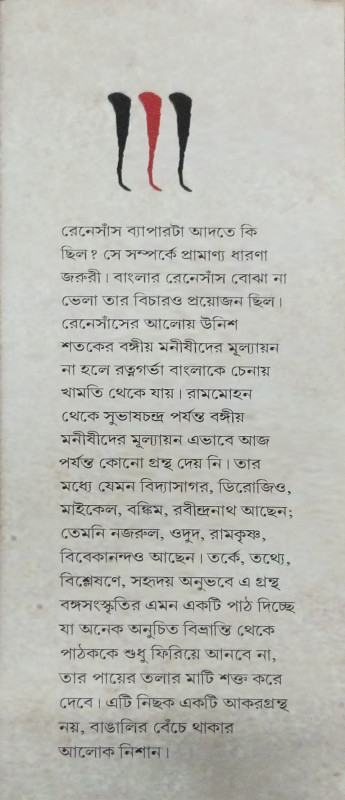 রেনেসাঁস ব্যাপারটা আদতে কি
ছিল? সে সম্পর্কে প্রামাণ্য ধারণা
জরুরী। বাংলার রেনেসাঁস বোঝা না
ভেলা তার বিচারও প্রয়োজন ছিল।
রেনেসাঁসের আলোয় উনিশ
শতকের বঙ্গীয় মনীষীদের মূল্যায়ন
না হলে রত্নগর্ভা বাংলাকে চেনায়
খামতি থেকে যায়। রামমোহন
থেকে সুভাষচন্দ্র পর্যন্ত বঙ্গীয়
মনীষীদের মূল্যায়ন এভাবে আজ
পর্যন্ত কোনো গ্রন্থ দেয় নি। তার
মধ্যে যেমন বিদ্যাসাগর, ডিরোজিও,
মাইকেল, বঙ্কিম, রবীন্দ্রনাথ আছেন;
তেমনি নজরুল, ওদুদ, রামকৃষ্ণ,
বিবেকানন্দও আছেন। তর্কে, তথ্যে,
বিশ্লেষণে, সহৃদয় অনুভবে এ গ্রন্থ
বঙ্গসংস্কৃতির এমন একটি পাঠ দিচ্ছে
যা অনেক অনুচিত বিভ্রান্তি থেকে
পাঠককে শুধু ফিরিয়ে আনবে না,
তার পায়ের তলার মাটি শক্ত করে
দেবে। এটি নিছক একটি আকরগ্রন্থ
নয়, বাঙালির বেঁচে থাকার
আলোক নিশান।